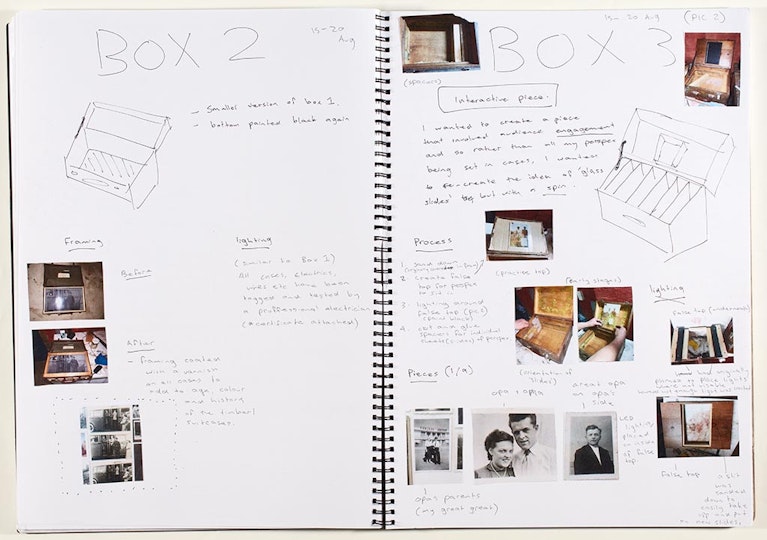 BOX 2
15-20
Aug
- Smaller version of box 1.
- bottom painted black again
Framing
Before
After
- framing coated
with a varnish
on all cases to
add to age, colour
and history
of the timber/
suitcases.
lighting
(similar to Box 1)
All cases, electrics,
wires etc have been
tagged and tested by
a proffessional electrician
(certificate attached)
BOX 3
15-20 Aug
(PIC 2)
(spacers)
Interactive piece:
I wanted to create a piece
that involved audience engagement
and so rather than all my perspex
being set in cases, I wanted
to re-create the idea of 'glass
slides' but with a spin.
Process
1. sand down
2. create false
top for perspex
to sit in
3. lighting around
false top (pic 2)
(paint black)
4. cut out
for individual
sheets of perspex
(practise top)
(early stages)
(orientation of
slides)
lighting
false top (underneath)
originally
planned to place lights
Pieces (1/9)
opa + oma
great opa
on opa's
side
opas parents
(my great great)
LED
lights
placed
side
of false
top.
false top
a slit
was
sanded
down to
easily take
off and put
in new slides.